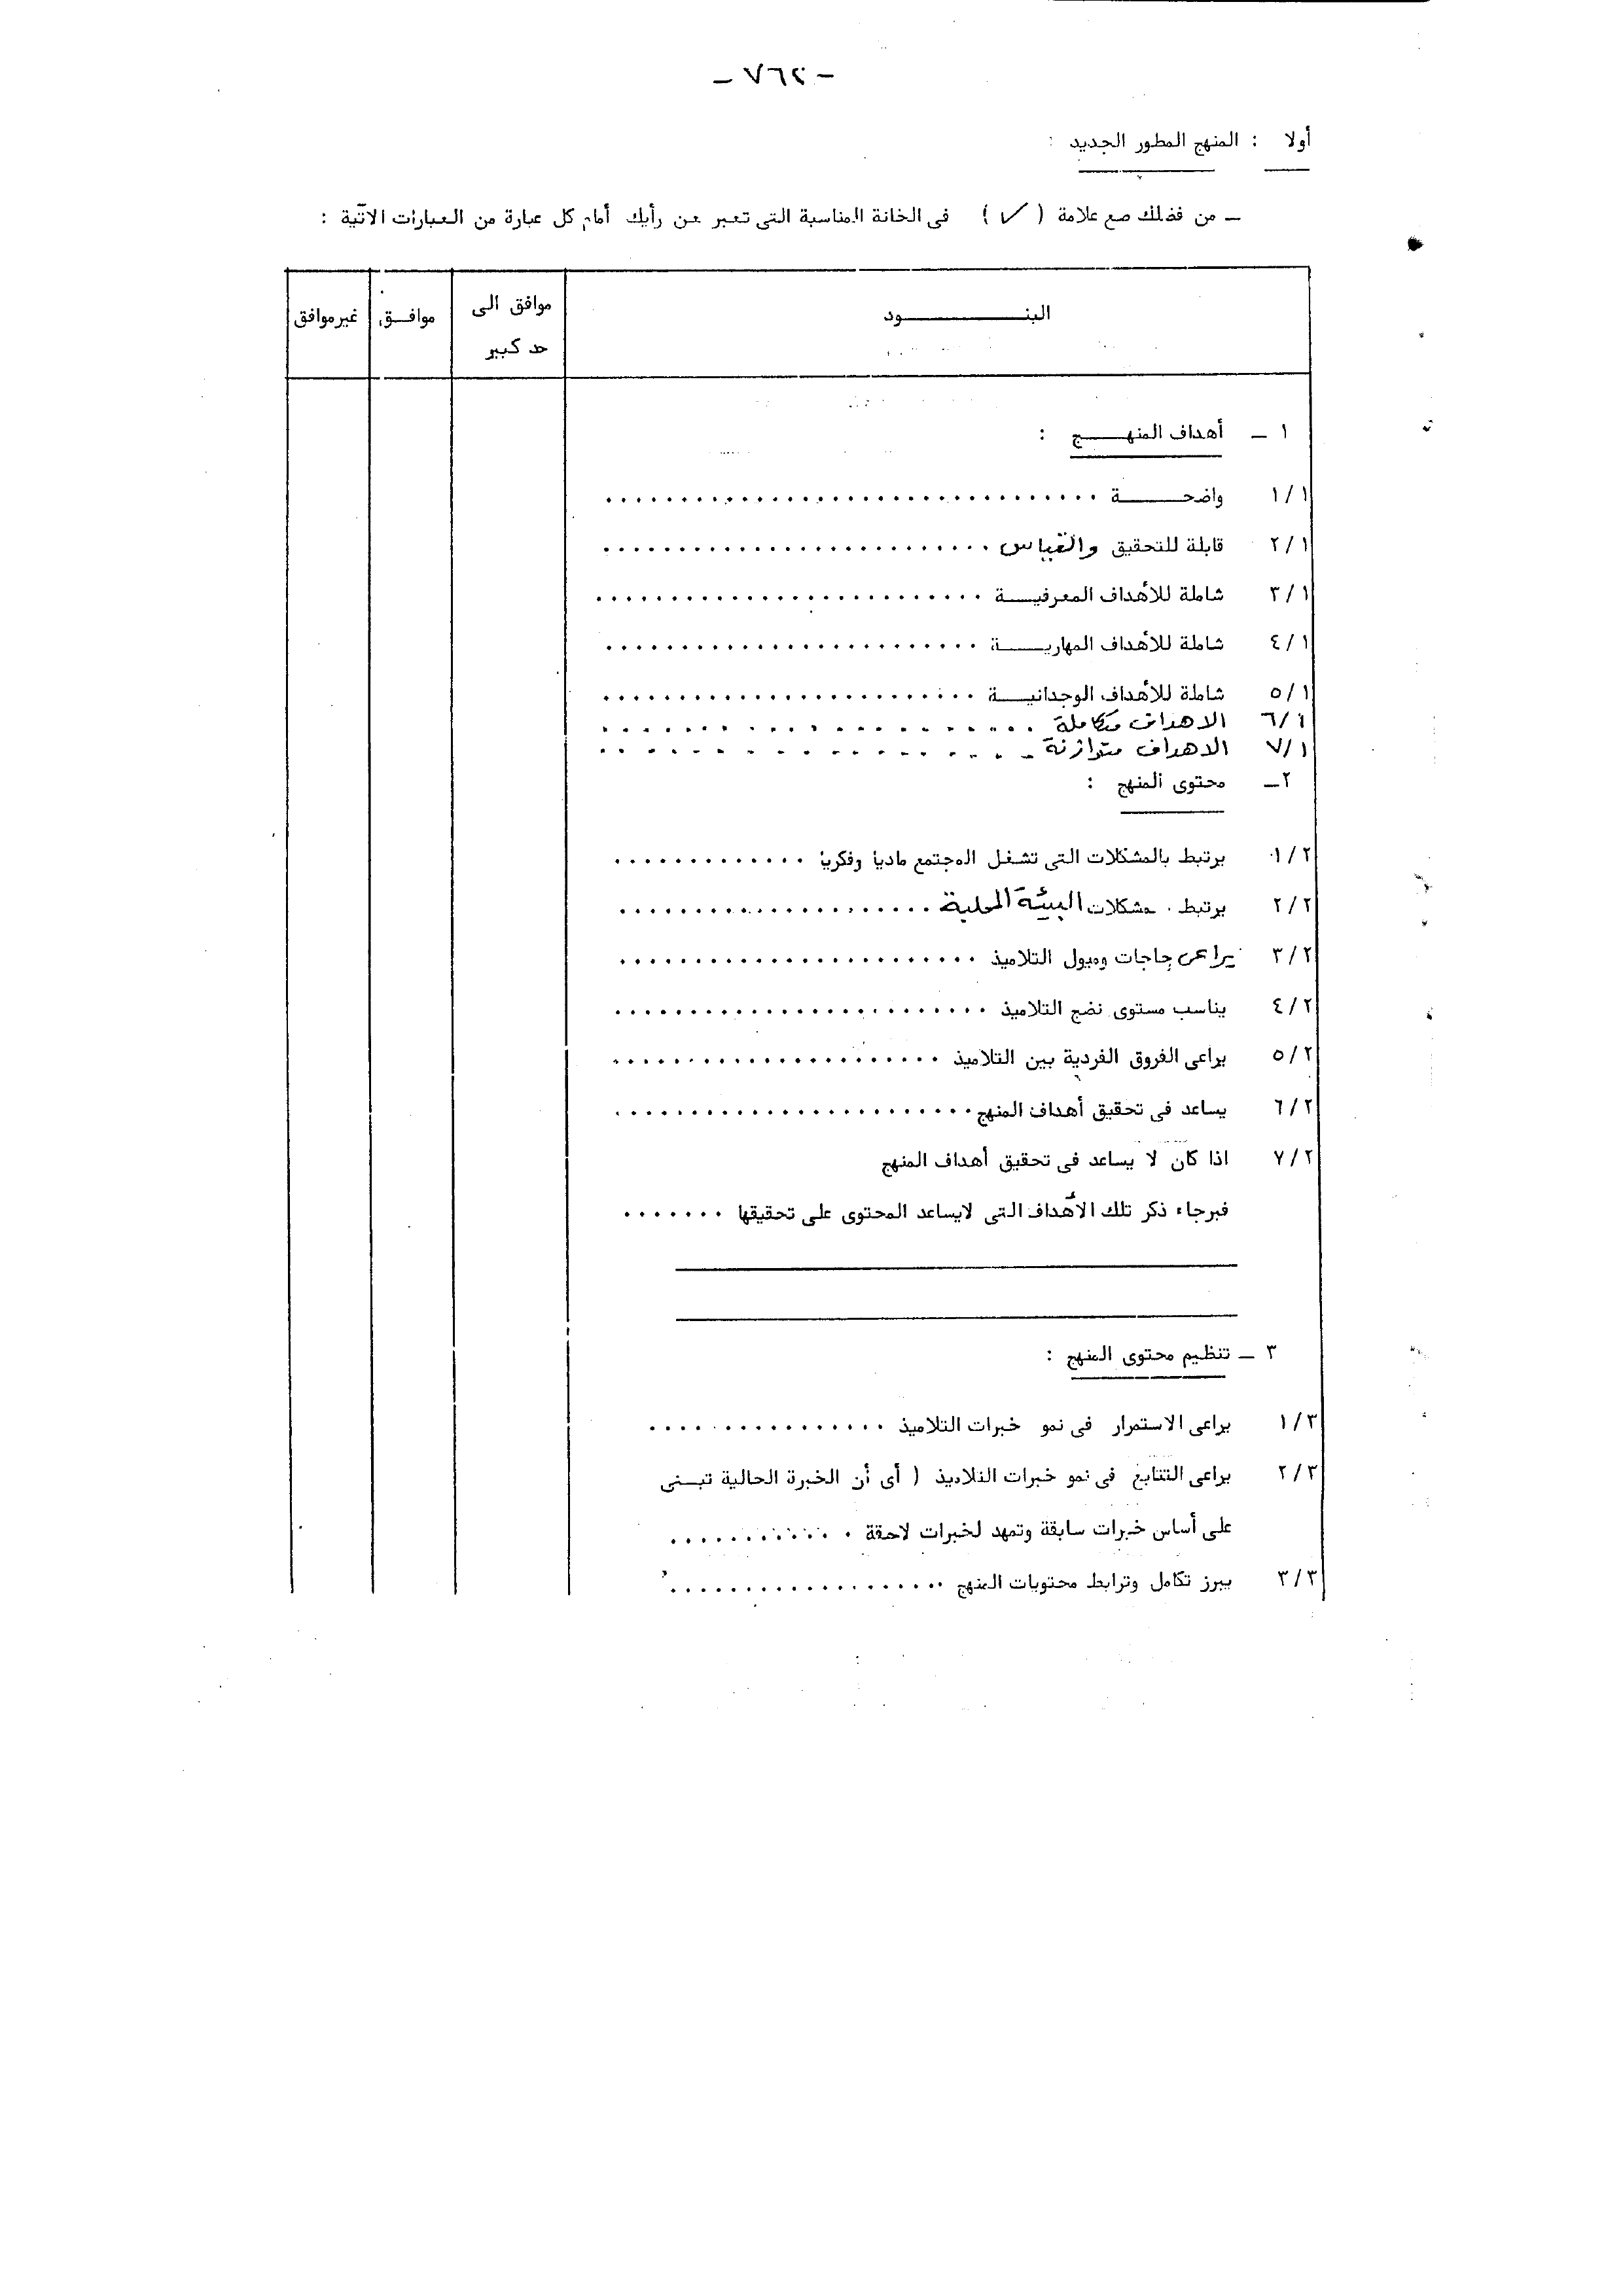 - ٧٦٢ -
أولا : المنهج المطور الجديد :
ــ من فضلك ضع علامة ( ✓ ) فى الخانة المناسبة التى تعبر عن رأيك أمام كل عبارة من العبارات الآتية :
البنــــــــــود موافق الى موافــق غير موافق
حد كبير
١ ــ أهداف المنهــــج :
١/١ واضحـــــة ................................
٢/١ قابلة للتحقيق والقياس ..........................
٣/١ شاملة للأهداف المعرفيــة ..........................
٤/١ شاملة للأهداف المهاريــــة .........................
٥/١ شاملة للأهداف الوجدانيـــة .........................
٦/١ الاهداف متكاملة ....................
٧/١ الاهداف متوازنة ....................
٢ــ محتوى المنهج :
١/٢ يرتبط بالمشكلات التى تشغل المجتمع ماديا وفكريا .............
٢/٢ يرتبط بمشكلات البيئة المحلية .....................
٣/٢ يراعى حاجات وميول التلاميذ ........................
٤/٢ يناسب مستوى نضج التلاميذ .........................
٥/٢ يراعى الفروق الفردية بين التلاميذ ......................
٦/٢ يساعد فى تحقيق أهداف المنهج ........................
٧/٢ اذا كان لا يساعد فى تحقيق أهداف المنهج
فبرجاء ذكر تلك الأهداف التى لايساعد المحتوى على تحقيقها .......
٣ ــ تنظيم محتوى المنهج :
١/٣ يراعى الاستمرار فى نمو خبرات التلاميذ ................
٢/٣ يراعى التتابع فى نمو خبرات التلاميذ ( أى أن الخبرة الحالية تبــنى
على أساس خبرات سابقة وتمهد لخبرات لاحقة ............
٣/٣ يبرز تكامل وترابط محتويات المنهج ...................